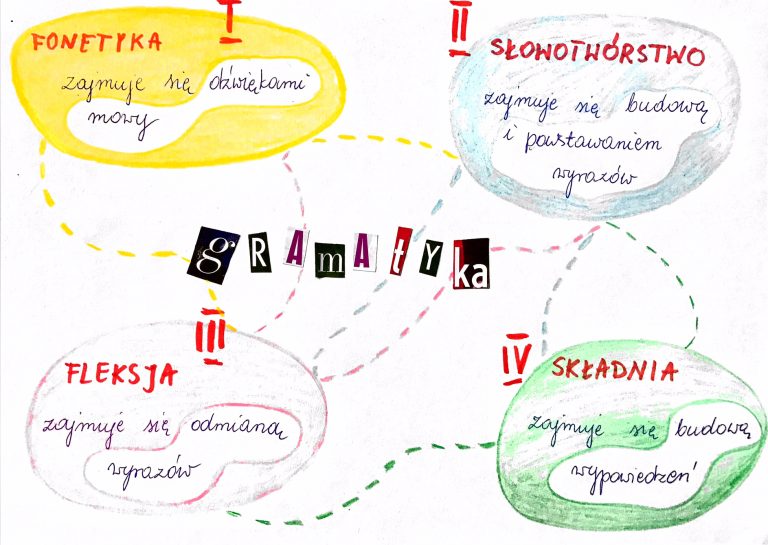 I
FONETYKA
zajmuje się dźwiękami
mowy
II
SŁOWOTWÓRSTWO
zajmuje się budową
i powstawaniem
wyrazów
gRAmAtYka
III
FLEKSJA
zajmuje się odmianą
wyrazów
IV
SKŁADNIA
zajmuje się budową
wypowiedzeń